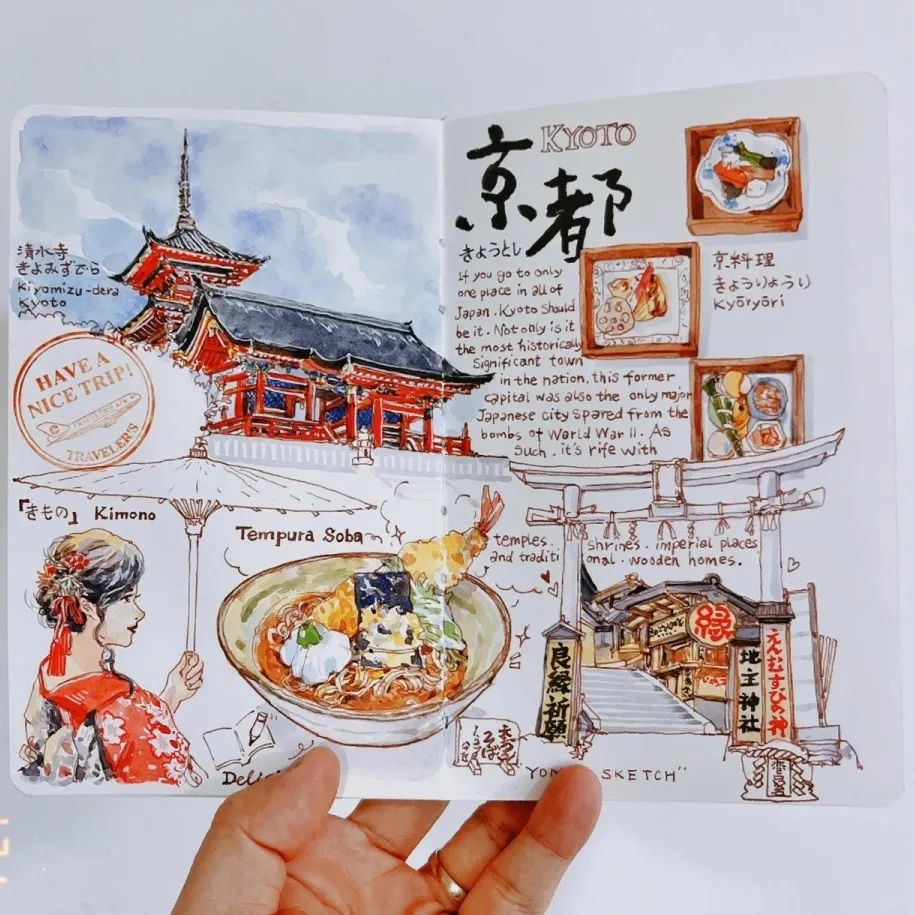 清水寺
きよみずでら
kiyomizu-dera
Kyoto
HAVE A
NICE TRIP!
TRAVELER'S
「きもの」 Kimono
Tempura Soba
京都
KYOTO
きょうとし
If you go to only
one place in all of
Japan. Kyoto should
be it. Not only is it
the most historically
Significant town
in the nation, this former
capital was also the only major
Japanese city spared from the
bombs of World War II. As
Such, it's rife with
temples, shrines, imperial places
and traditional wooden homes.
京料理
きょうりょうり
kyōryōri
縁
良縁祈願
えんむすびの神
地主神社
SKETCH"